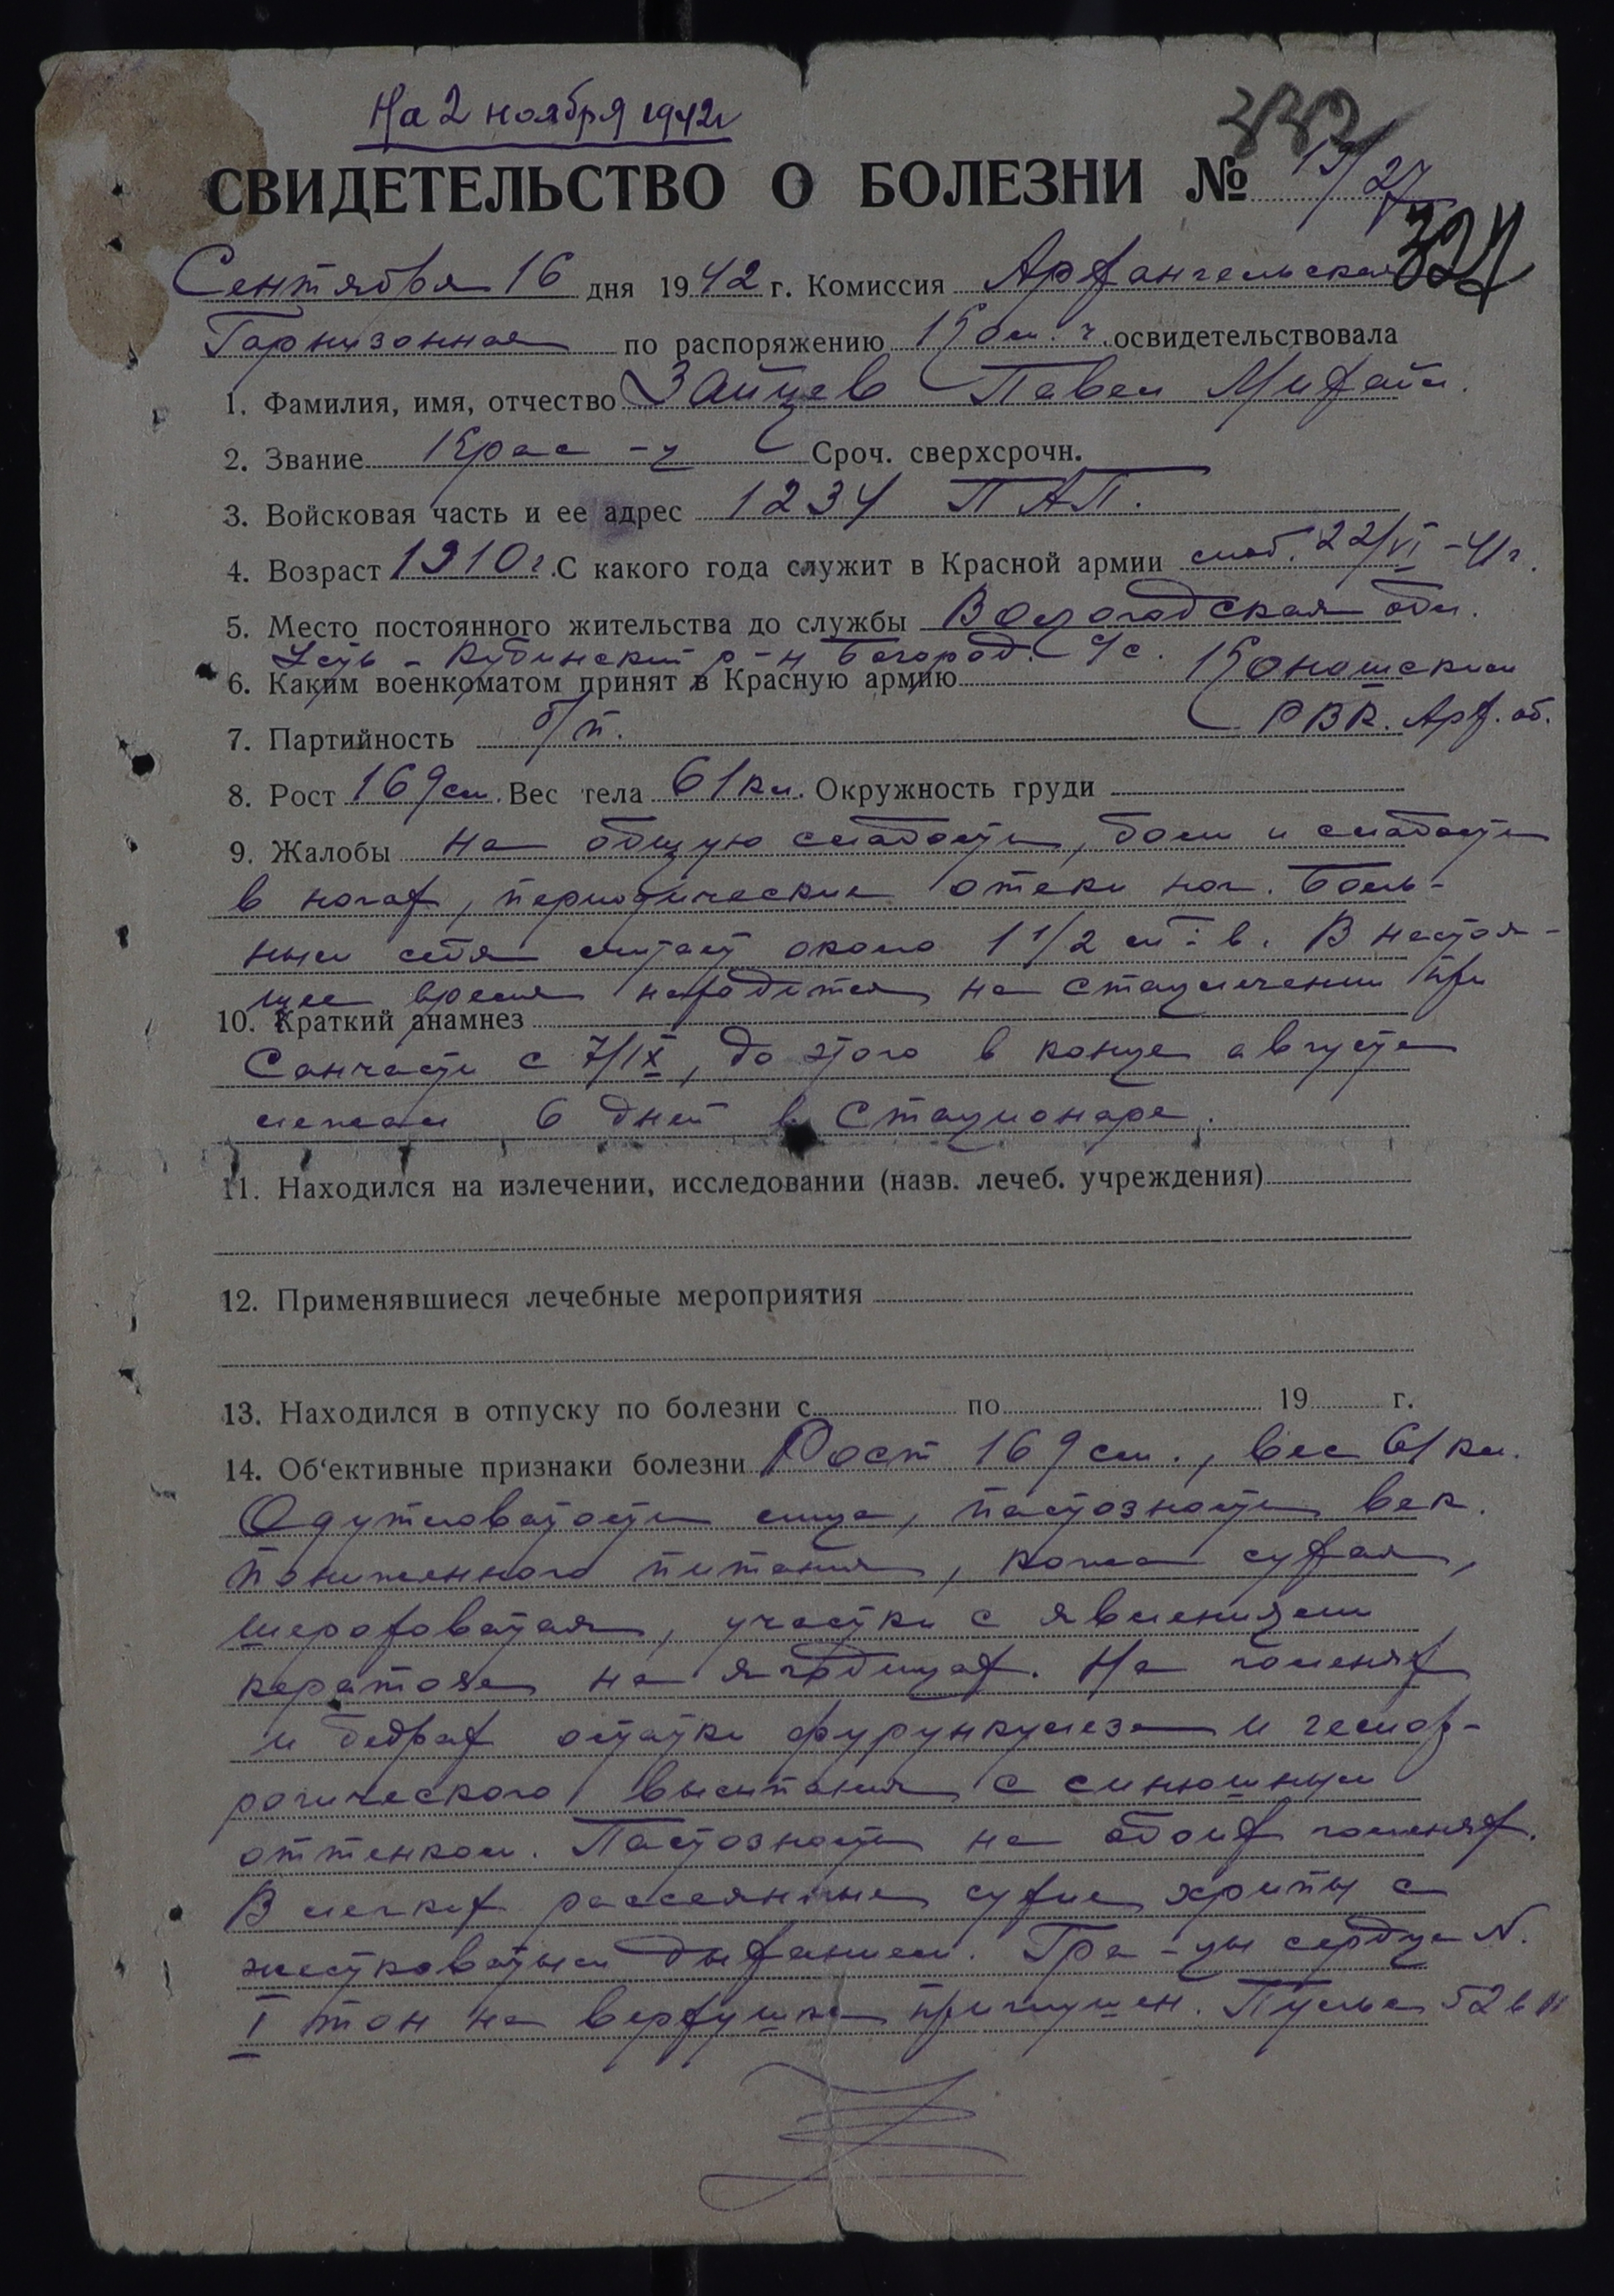 На 2 ноября 1942г
СВИДЕТЕЛЬСТВО О БОЛЕЗНИ № 19/27
332
327
Сентября 16 дня 1942 г. Комиссия Архангельская
Гарнизонная по распоряжению Ком. ч. освидетельствовала
1. Фамилия, имя, отчество Зайцев Павел Михайл.
2. Звание Крас-ц Сроч. сверхсрочн.
3. Войсковая часть и ее адрес 1234 ПАП.
4. Возраст 1910г. С какого года служит в Красной армии моб. 22/VI-41г.
5. Место постоянного жительства до службы Вологодская обл.
Усть-Кубинский р-н Богород. с/с. Коношским
6. Каким военкоматом принят в Красную армию
РВК. Арх. об.
7. Партийность б/п.
8. Рост 169см. Вес тела 61кл. Окружность груди
9. Жалобы на общую слабость, боли и слабость
в ногах, периодические отеки ног. Боль-
ным себя считает около 1 1/2 м-в. В настоя-
щее время находится на стацлечении при
10. Краткий анамнез
Санчасти с 7/IX, до этого в конце августа
лежал 6 дней в стационаре.
11. Находился на излечении, исследовании (назв. лечеб. учреждения)
12. Применявшиеся лечебные мероприятия
13. Находился в отпуску по болезни с по 19 г.
14. Об'ективные признаки болезни Рост 169см., вес 61кл.
Одутловатость лица, пастозность век.
Пониженного питания, кожа сухая,
шероховатая, участки с явлениями
кератоза на ягодицах. На голенях
и бедрах остатки фурункулеза и гемор-
рагического высыпания с синюшным
оттенком. Пастозность на обоих голенях.
В легких рассеянные сухие хрипы с
жестковатым дыханием. Гра-цы сердца N.
I тон на верхушке приглушен. Пульс 52 в 1'